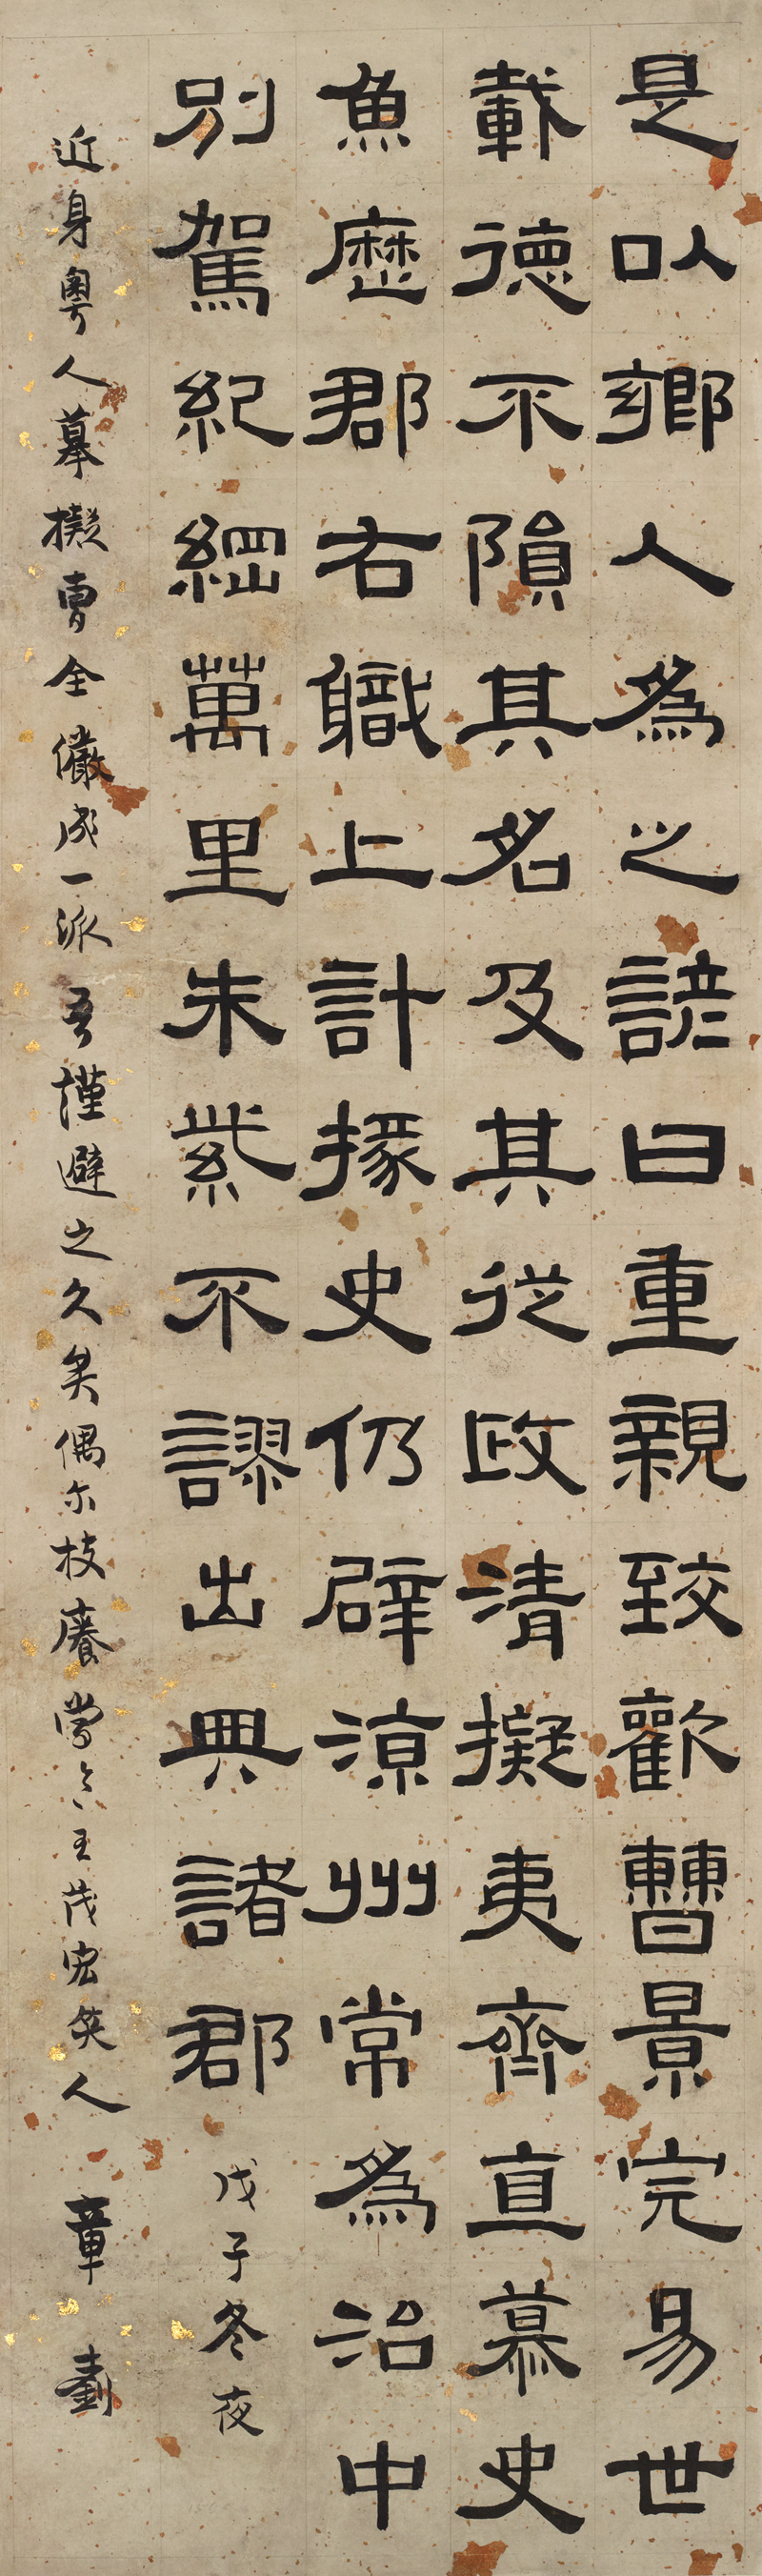 是以鄉人為之諺曰重親致歡曹景完易世
載德不隕其名及其從政清擬夷齊直慕史
魚歷郡右職上計掾史仍辟涼州常為治中
別駕紀綱萬里朱紫不謬出典諸郡 戊子冬夜
近身粵人摹擬曹全儼成一派吾謹避之久矣偶尔技癢當令王茂宏笑人 章劃